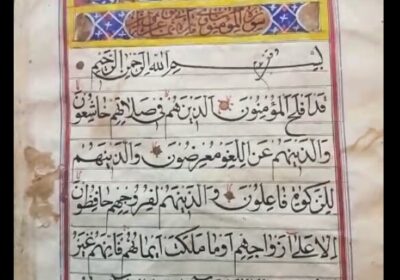 سورة المؤمنون
بسم الله الرحمن الرحيم
قد افلح المؤمنون الذينهم في صلاتهم خاشعون
والذينهم عن اللغو معرضون والذينهم
للزكوة فاعلون والذينهم لفروجهم حافظون
الا على ازواجهم او ما ملكت ايمانهم فانهم غير